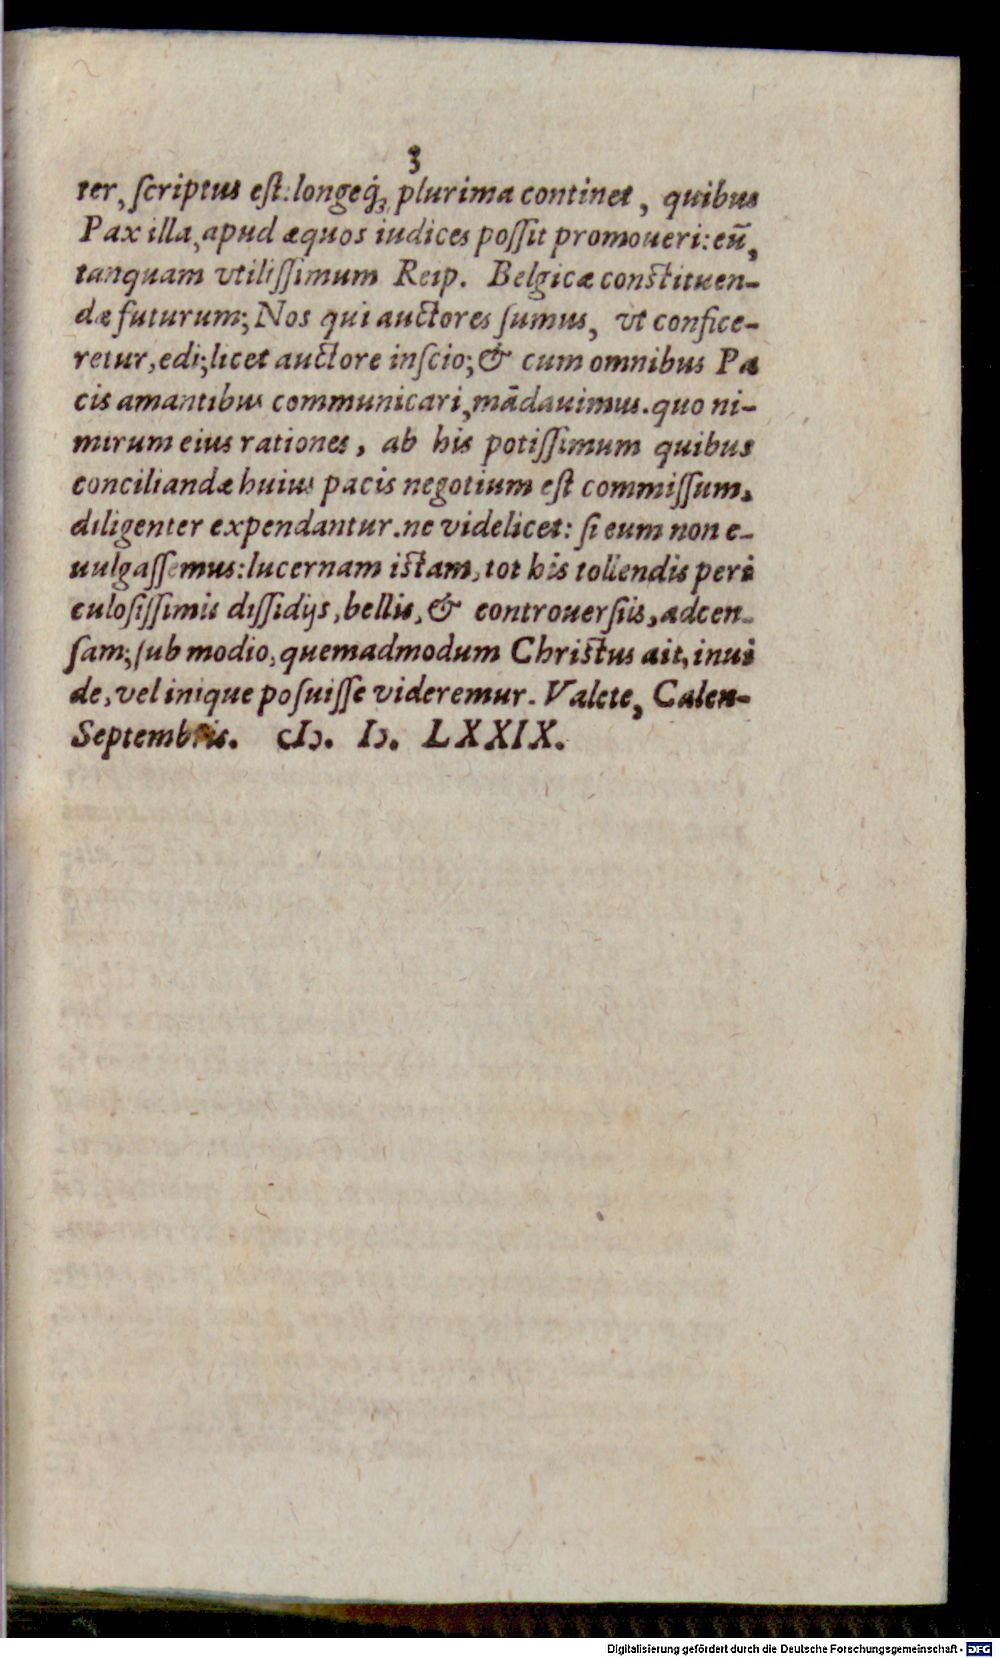 3
ter, ſcriptus eſt: longeq́ꝫ, plurima continet, quibus
Pax illa, apud æquos iudices poſſit promoueri: eū,
tanquam vtiliſſimum Reip. Belgicæ conſtituen-
dæ futurum; Nos qui auctores ſumus, vt confice-
retur, edi; licet auctore inſcio; & cum omnibus Pa
cis amantibus communicari, mādauimus. quo ni-
mirum eius rationes, ab his potiſſimum quibus
conciliandæ huius pacis negotium eſt commiſſum,
diligenter expendantur. ne videlicet: ſi eum non e-
uulgaſſemus: lucernam iſtam, tot his tollendis peri
culoſiſſimis diſſidijs, bellis, & controuerſiis, adcen-
ſam; ſub modio, quemadmodum Chriſtus ait, inui
de, vel inique poſuiſſe videremur. Valete, Calen-
Septembris. cIɔ. Iɔ. LXXIX.
Digitalisierung gefördert durch die Deutsche Forschungsgemeinschaft - DFG